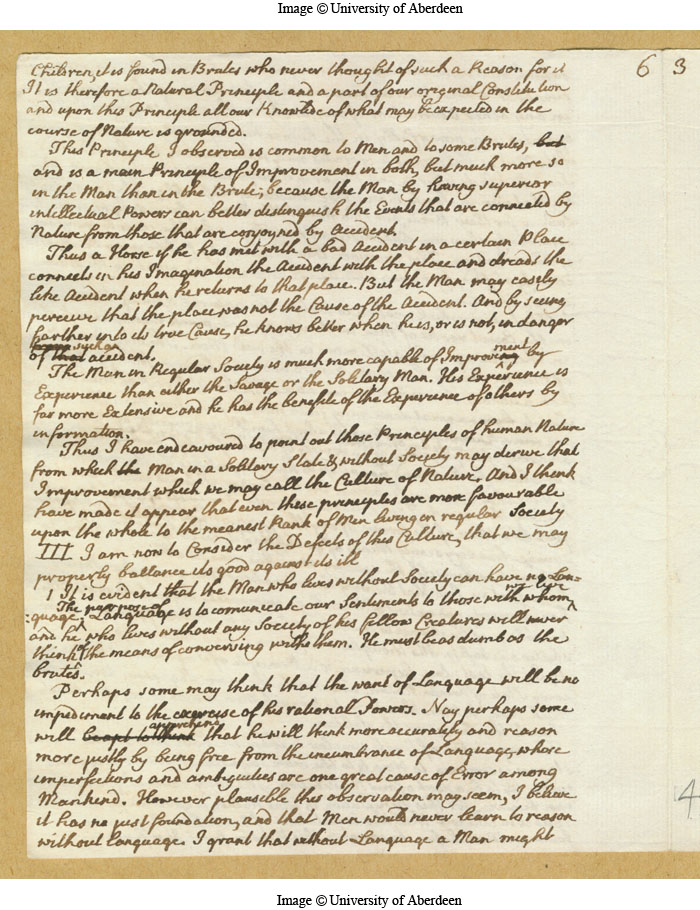 Image © University of Aberdeen
6 3
Children, it is found in Brutes who never thought of such a Reason for it
It is therefore a Natural Principle and a part of our original Constitution
and upon this Principle all our Knowledge of what may be expected in the
course of Nature is grounded.
This Principle I observed is common to Men and to some Brutes, but
and is a main Principle of Improvement in both, but much more so
in the Man than in the Brute; because the Man by having superior
intellectual Powers can better distinguish the Events that are connected by
Nature from those that are conjoyned by Accident.
Thus a Horse if he has met with a bad Accident in a certain Place
connects in his Imagination the Accident with the place and dreads the
like Accident when he returns to that place. But the Man may easily
perceive that the place was not the Cause of the Accident. And by seeing
farther into its true Cause, he knows better when he is, or is not, in danger
such an
of that accident.
The Man in Regular Society is much more capable of Improvement by
Experience than either the Savage or the Solitary Man. His Experience is
far more Extensive and he has the benefite of the Experience of others by
information.
Thus I have endeavoured to point out those Principles of human Nature
from which the Man in a Solitary State & without Society may derive that
Improvement which we may call the Culture of Nature. And I think
have made it appear that even these principles are more favourable
upon the whole to the meanest Rank of Men living in regular Society
III I am now to Consider the Defects of this Culture, that we may
properly ballance its good against its ill
1 It is evident that the Man who lives without Society can have no Lan=
The purpose of we live
=guage; Language is to comunicate our Sentiments to those with whom
and he who lives without any Society of his fellow Creatures will never
think of the means of conversing with them. He must be as dumb as the
brutes.
Perhaps some may think that the want of Language will be no
impediment to the exercise of his rational Powers. Nay perhaps some
apprehend
will be apt to think that he will think more accurately and reason
more justly by being free from the incumbrance of Language, whose
imperfections and ambiguities are one great cause of Error among
Mankind. However plausible this observation may seem, I believe
it has no just foundation, and that Men would never learn to reason
without language. I grant that without Language a Man might
4
Image © University of Aberdeen